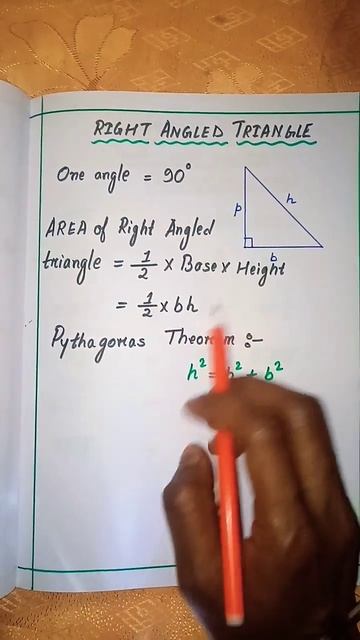 RIGHT ANGLED TRIANGLE
One angle = 90°
p
h
b
AREA of Right Angled
triangle = 1/2 × Base × Height
= 1/2 × bh
Pythagoras Theorem :-
h² = + b²